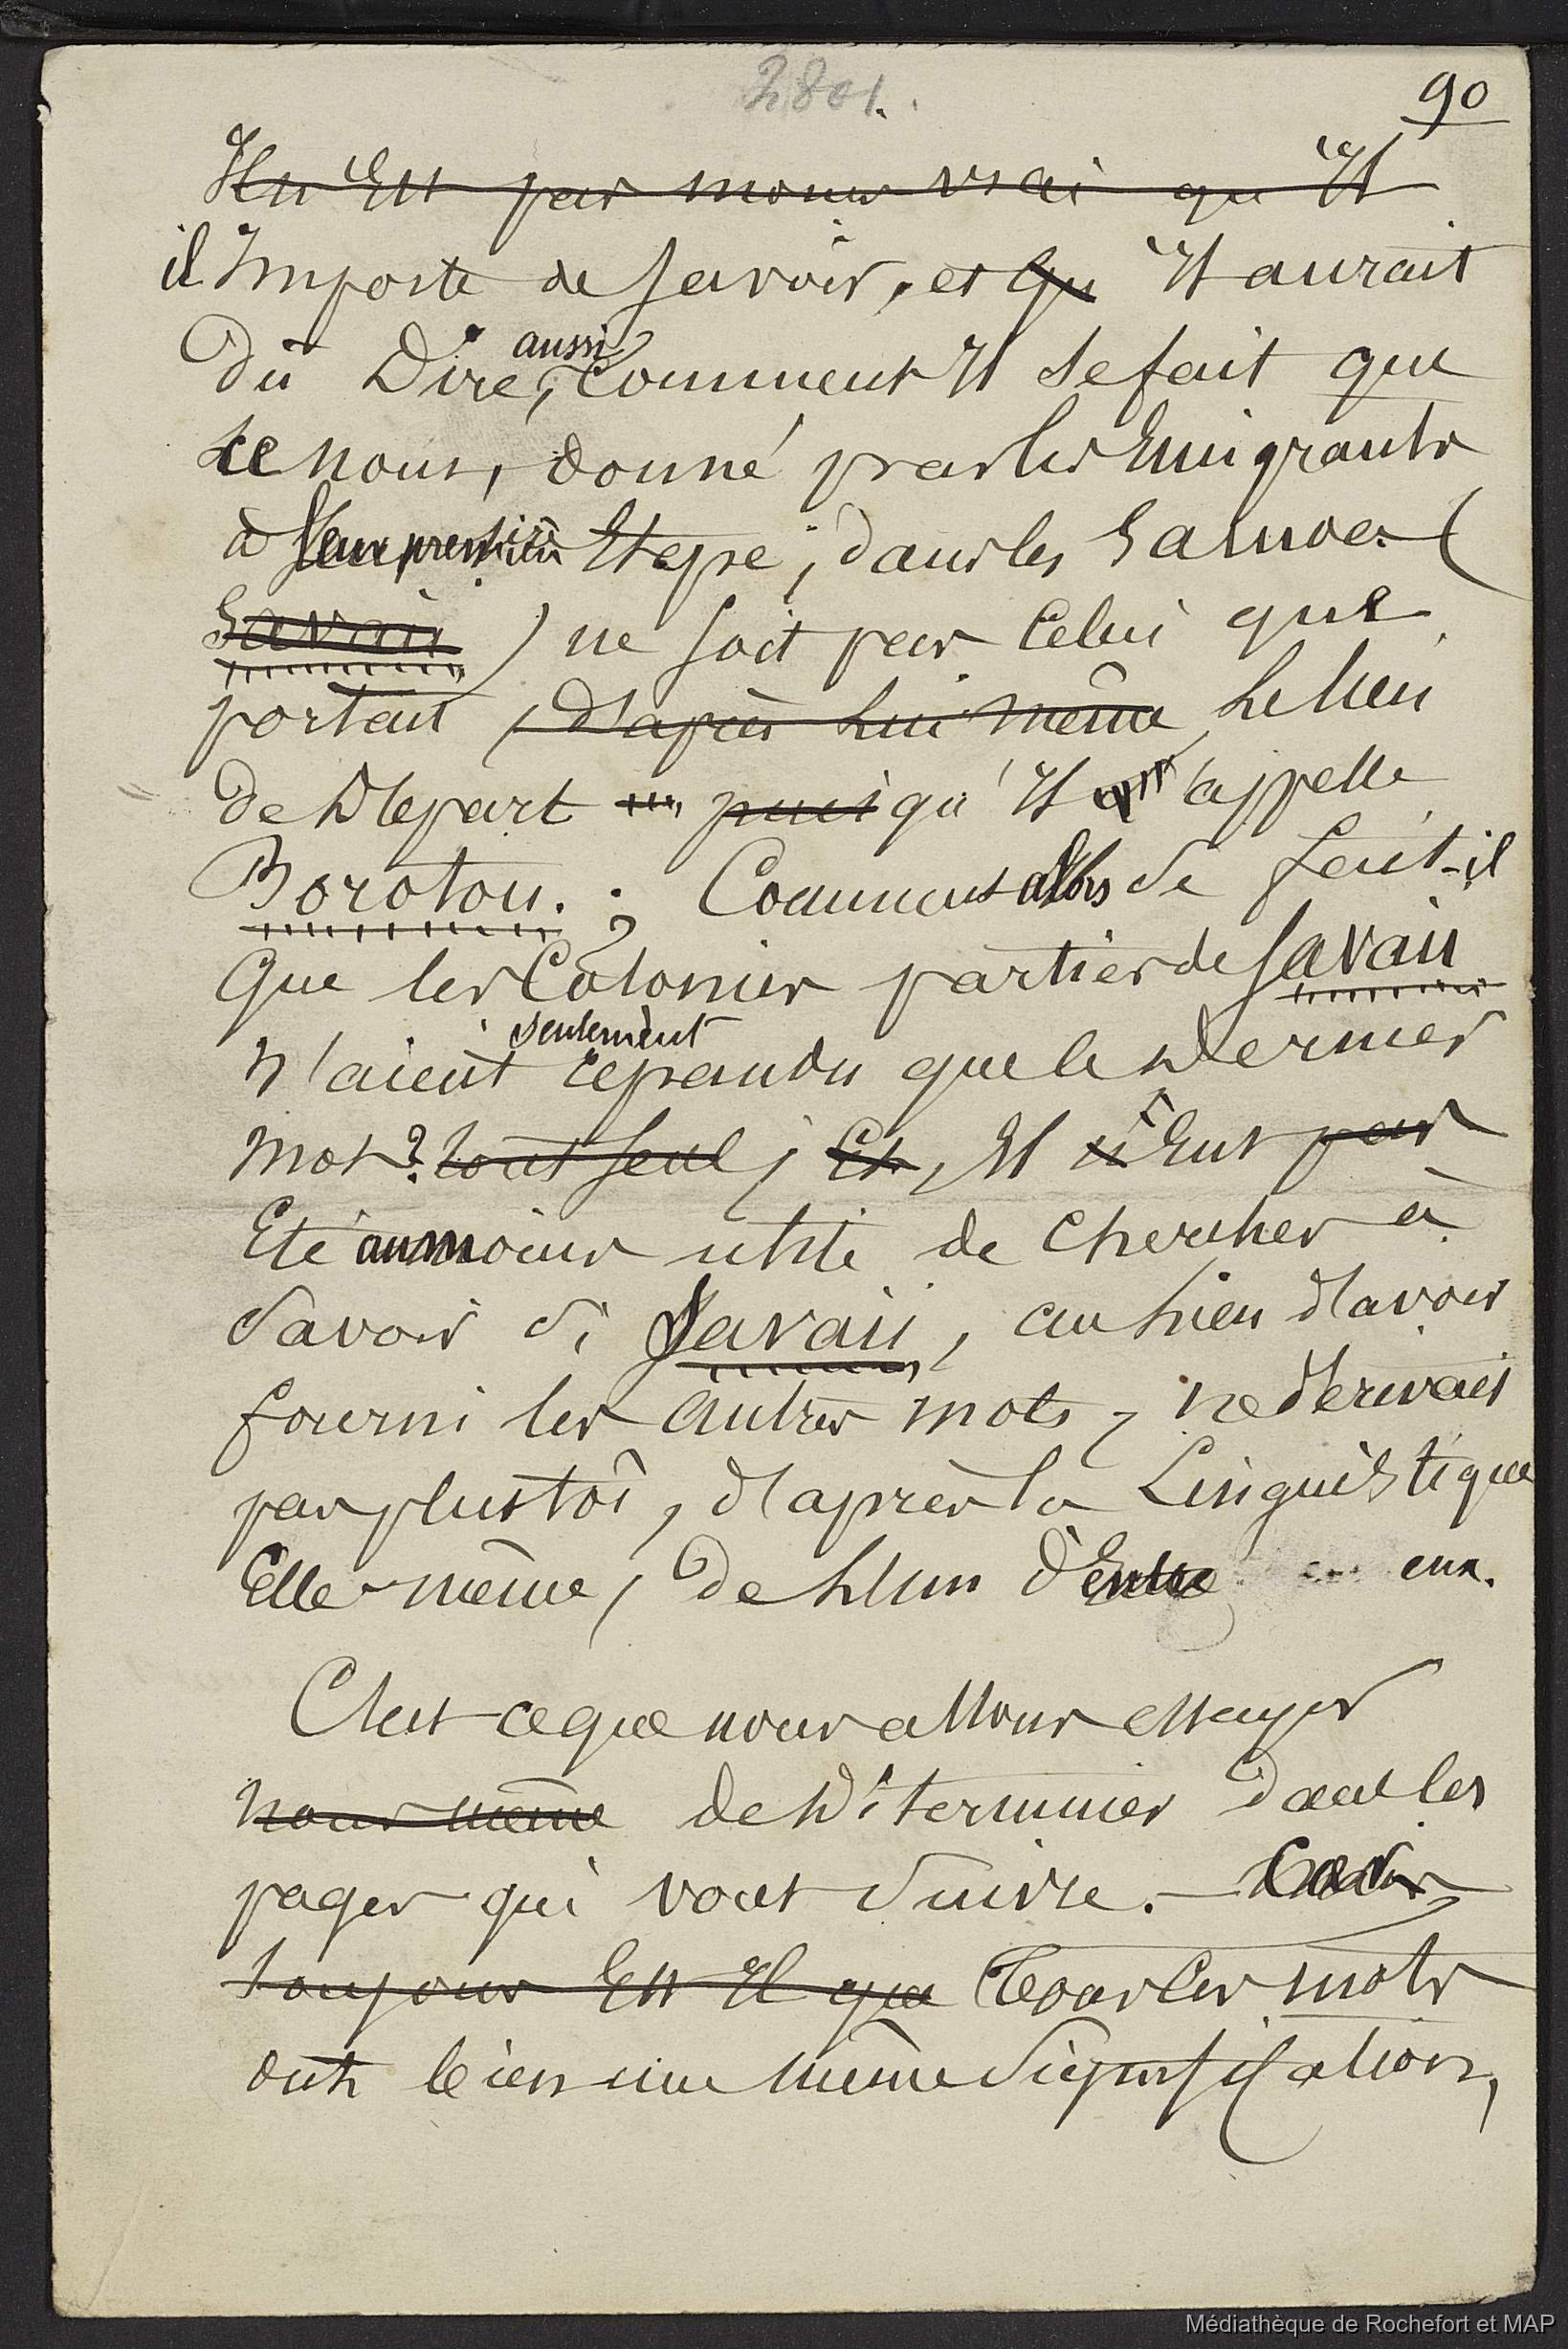 2801.
90
Il n'Est pas moins vrai qu'Il
il Importe de savoir, et qu' Il aurait
dû Dire, aussi, Comment Il se fait que
ce nom, donné par les Emigrants
à leur première Etape, dans les Samoa (
Savaii ) ne soit pas Celui que
portait, d'après Lui même Le lieu
de Départ puis qu'Il appelle
Borotou. ; Comment alors se fait-il
Que les Colonies parties de Savaii
N'aient seulement répandu que le Dernier
Mot? tout seul; Et, Il Eut pas
Eté au moins utile de Chercher à
Savoir Si Savaii, au Lieu d'avoir
fourni les autres mots, ne dérivait
pas plustôt, d'après la Linguistique
Elle-même, de L'un d'Entre eux.
C'est ce que nous allons essayer
Nous même de Déterminer dans les
pages qui vont Suivre. —
toujours Est Il que Tous les mots
ont bien une même Signification,
Médiathèque de Rochefort et MAP